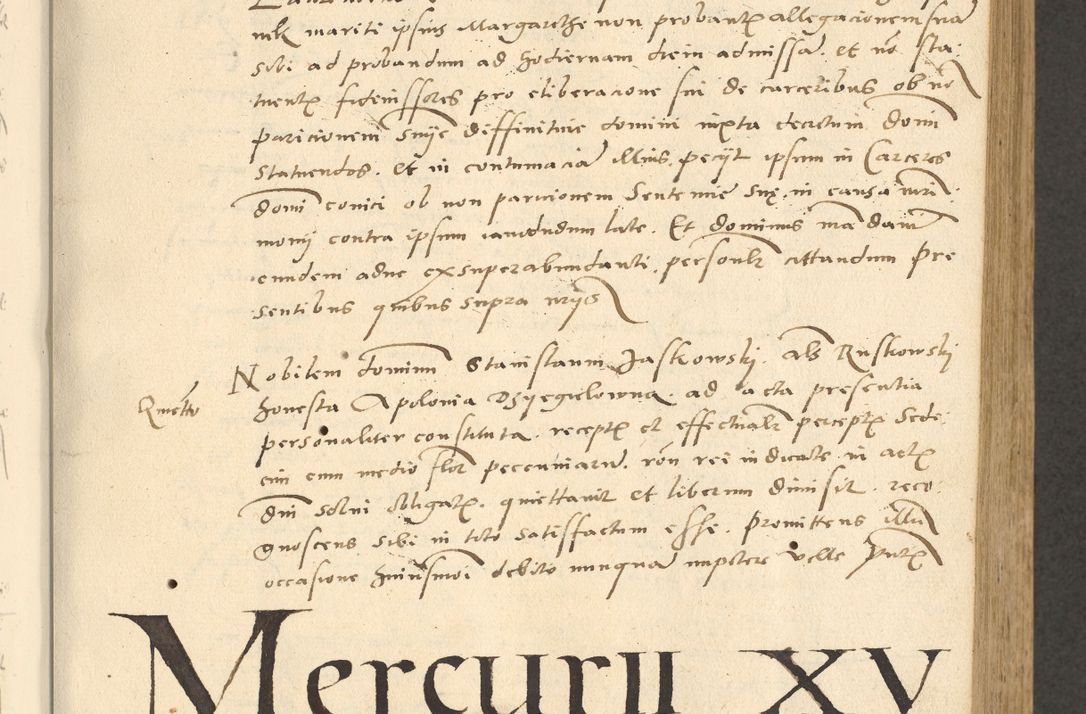 mariti ipsius Margarethe non probantꝫ allegacionem suā
sibi ad probandum ad hodiernam diem admissā. et nō sta-
tuentꝫ fideiussores pro eliberacione sui de carceribus ob nō
paricionem sn̄ie diffinitiue domini iuxta decretum domī
statuendos. et in contumaciā illius pecijt ipsum in Carceres
domī conici ob non paricionem Sentencie sue in causa mr̄i-
monij contra ipsum iamdudum late. Et dominus mādauit
eundem adhuc ex superabundanti personlr cittandum Pre
sentibus quibus supra
Nobilem dominum Stanislaum Jaskowski als Ruskowski
Quietto
honesta Apolonia Dzyegielowna ad acta presentia
personaliter constituta. receptꝫ et effectualr perceptꝫ Sede-
cim cum medio flor pecuniariū. rōn rei iudicate in actꝫ
dnī solui obligatꝫ. quiettauit et liberum dimisit. reco-
gnoscens sibi in toto satisfactum esse. Promittens illū
occasione huiusmōi debito nunquā impetere velle
Mercurii XV